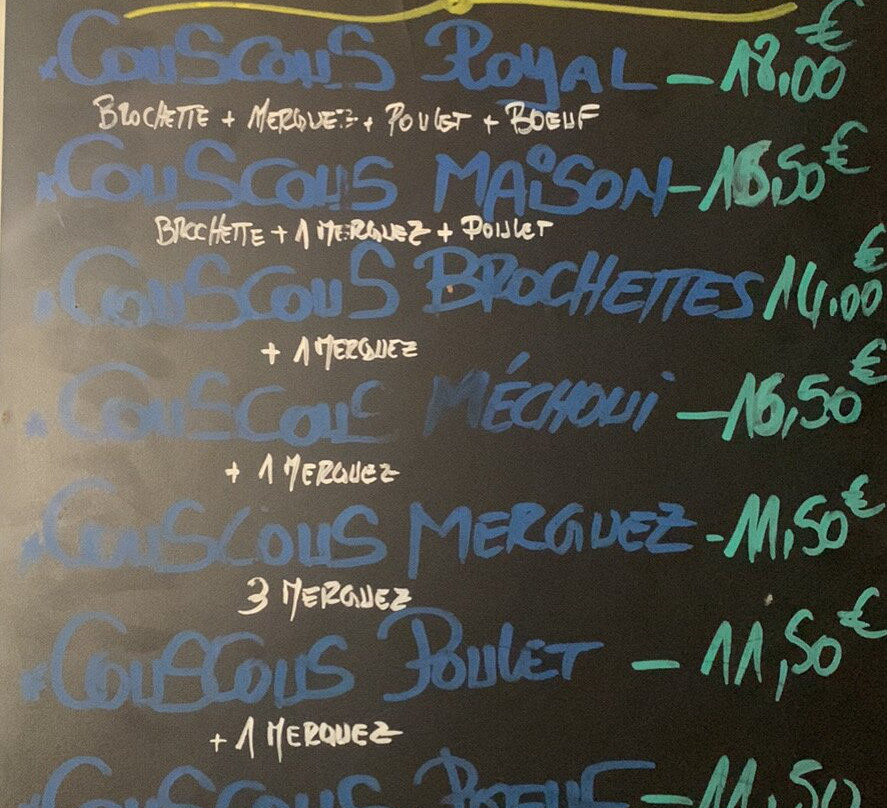 *Couscous Royal - 18,00€
Brochette + Merguez + Poulet + Boeuf
*Couscous Maison - 16,50€
Brochette + 1 Merguez + Poulet
*Couscous Brochettes 14,00€
+ 1 Merguez
*Couscous Méchoui - 16,50€
+ 1 Merguez
*Couscous Merguez - 11,50€
3 Merguez
*Couscous Poulet - 11,50€
+ 1 Merguez
*Couscous Boeuf - 11,50